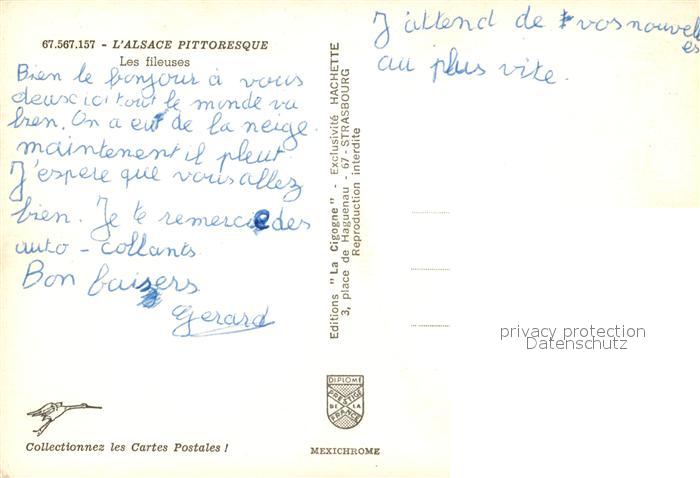 67.567.157 - L'ALSACE PITTORESQUE
Les fileuses
Bien le bonjour à vous
deux ici tout le monde va
bien. On a eut de la neige.
maintenent il pleut
J'espere que vous allez
bien. Je te remercie des
auto - collants
Bon baisers
Gerard
J'attend de vos nouvel
es
au plus vite.
Editions "La Cigogne" - Exclusivité HACHETTE
3, place de Haguenau - 67 - STRASBOURG
Reproduction interdite
privacy protection
Datenschutz
DIPLOME
PRESTIGE
DE LA
FRANCE
Collectionnez les Cartes Postales !
MEXICHROME